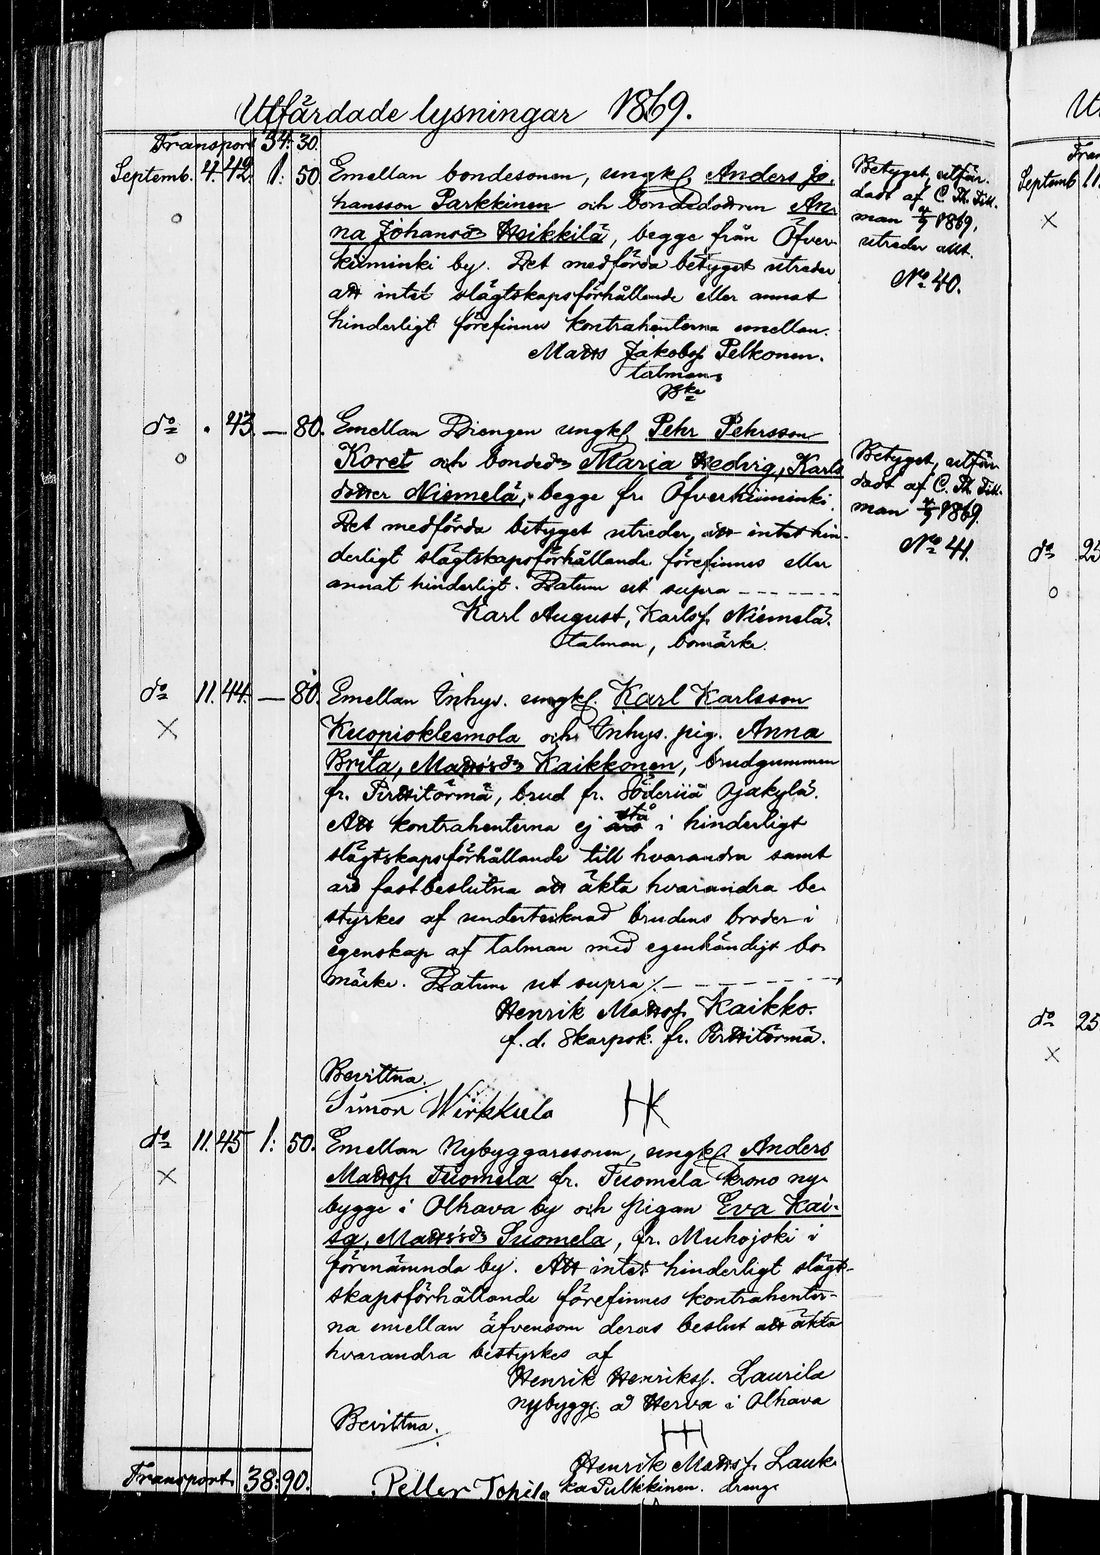 Utfärdade lysningar 1869.
Transport 34: 30.
Septemb. 4. 42. 1: 50. Emellan bondesonen, ungk. Anders Jo-
hansson Parkkinen och bondedottren An-
na Johansd:r Heikkilä, begge från Öfver-
kiiminki by. Det medförda betyget utreder
att intet slägtskapsförhållande eller annat
hinderligt förefinnes kontrahenterna emellan.
Matts Jakobss. Pelkonen.
talman
Betyget, utfär-
dadt af C. Th. Till-
man 4/9 1869,
utreder allt.
No 40.
do . 43. — 80. Emellan Drengen ungk. Pehr Pehrsson
Koret och bonded:r Maria Hedvig, Karls
dotter Niemelä, begge fr. Öfverkiiminki.
Det medförda betyget utreder, att intet hin-
derligt slägtskapsförhållande förefinnes eller
annat hinderligt. Datum ut supra
Karl August, Karlss. Niemelä.
talman, bomärke.
Betyget, utfär-
dadt af C. Th. Till-
man 4/9 1869.
No 41.
do 11. 44. — 80. Emellan Inhys. ungk. Karl Karlsson
Kuopioklesmola och Inhys. pig. Anna
Brita, Matts:sd:r Kaikkonen, brudgummen
fr. Pirttitörmä, brud fr. Söderijå Ojakylä.
Att kontrahenterna ej stå i hinderligt
slägtskapsförhållande till hvarandra samt
äro fast beslutna att äkta hvarandra be-
styrkes af undertecknad brudens broder i
egenskap af talman med egenhändigt bo-
märke. Datum ut supra
Henrik Mattss. Kaikko.
f. d. Skarpsk. fr. Pirttitörmä.
Bevittna.
Simon Wirkkula HK
do 11. 45 1: 50. Emellan Nybyggaresonen, ungk. Anders
Mattss. Tuomela fr. Tuomela krono ny-
bygge i Olhava by och pigan Eva Kai-
sa, Matts:sd:r Suomela, fr. Muhojoki i
förenämnda by. Att intet hinderligt slägt-
skapsförhållande förefinnes kontrahenter-
na emellan äfvensom deras beslut att äkta
hvarandra bestyrkes af
Henrik Henrikss. Laurila
nybygg. å Herva i Olhava
Bevittna.
Henrik Mattss. Lauk-
ka Pulkkinen. dreng.
Peller Topila
Transport. 38: 90.
Septemb 11.
do 25
do 25